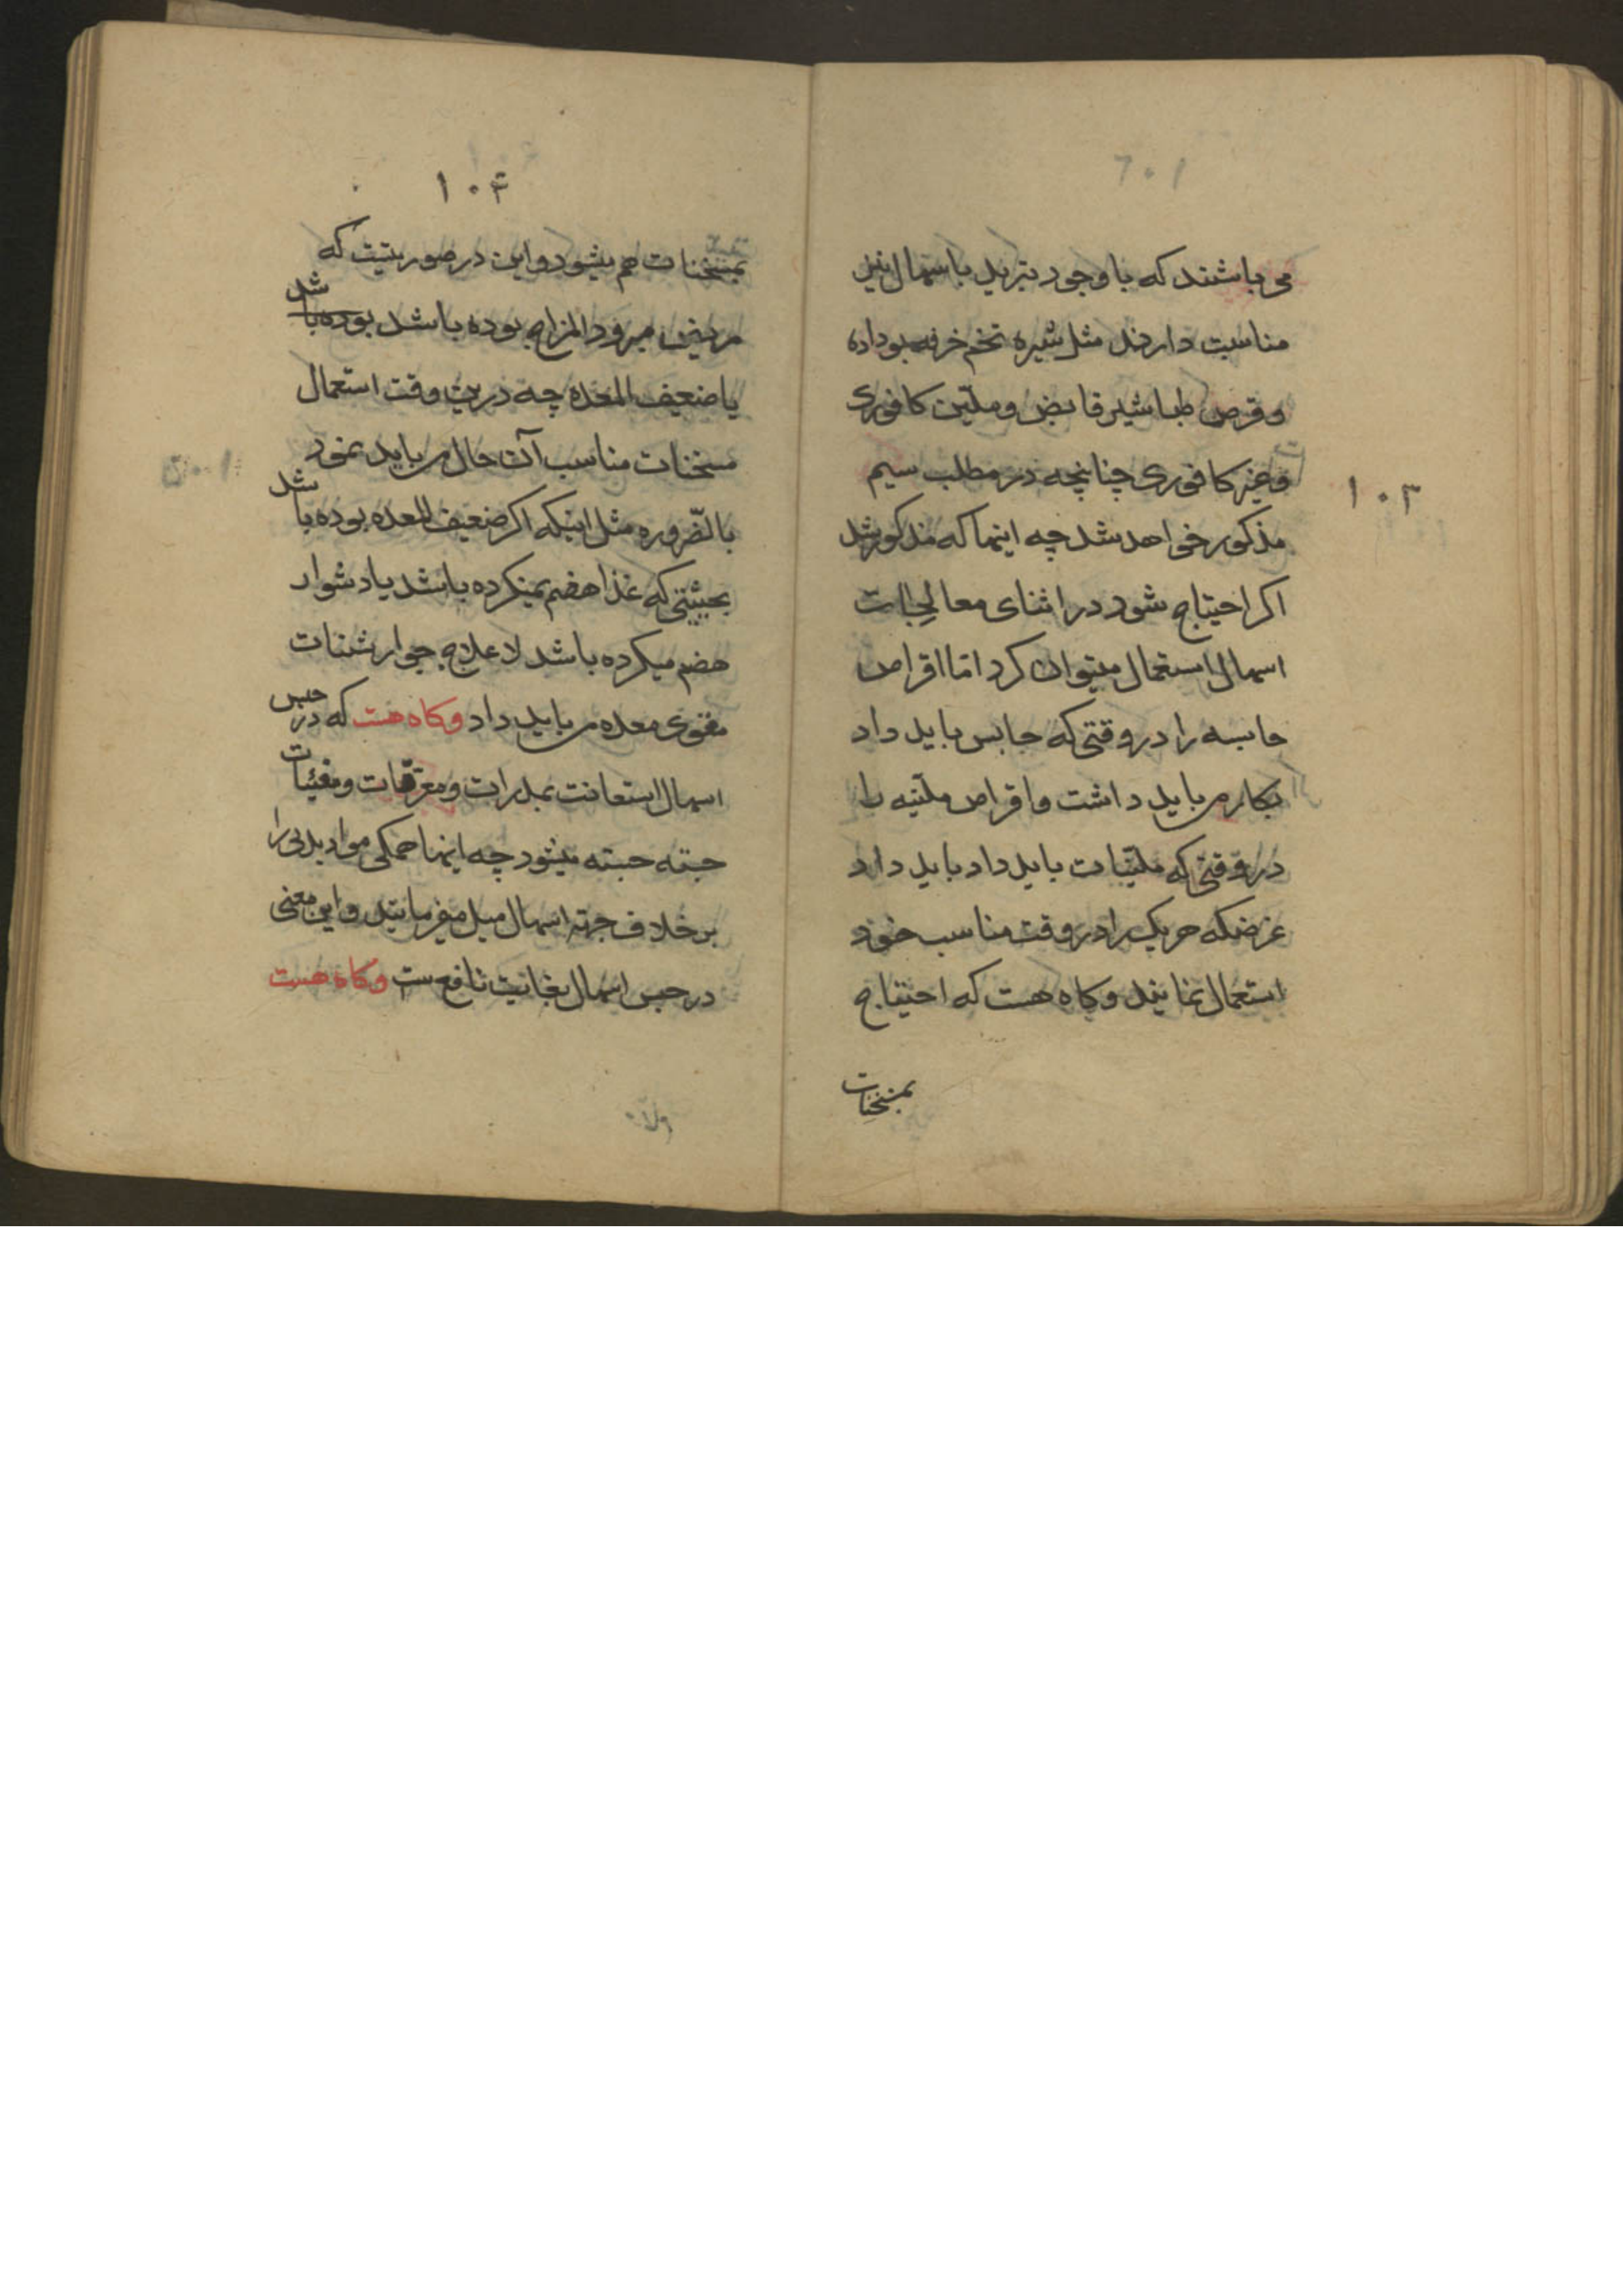 می باشند که با وجود تبرید باسهال نیز
مناسبت دارند مثل شیره تخم خرفه بوداده
و قرص طباشیر قابض و ملین کافوری
و غیر کافوری چنانچه در مطلب سیم
۱۰۳
مذکور خواهد شد چه اینها که مذکور شد
اکر احتیاج شود در اثنای معالجات
اسهال استعمال میتوان کرد اما اقراص
حابسه را در وقتی که حابس باید داد
بکار می باید داشت و اقراص ملینه را
در وقتی که ملینات باید داد باید داد
غرضکه هر یک را در وقت مناسب خود
استعمال نمایند و کاه هست که احتیاج
بمسخنات
۱۰۴
بمسخنات هم میشود و این در صورتیست که
مریض مبرود المزاج بوده باشد بوده باشد
یا ضعیف المعده چه درین وقت استعمال
مسخنات مناسب آن حال می باید نمود
بالضروره مثل اینکه اکر ضعیف المعده بوده باشد
بحیثیتی که غذا هضم نمیکرده باشد یا دشوار
هضم میکرده باشد لاعلاج جوارشنات
مقوی معده می باید داد و کاه هست که در حبس
اسهال استعانت بمدرات و معرقات و مقیئات
جسته جسته میشود چه اینها همکی مواد بدنی را
بر خلاف جهة اسهال میل میفرمایند و این معنی
در حبس اسهال بغایت نافع ست و کاه هست